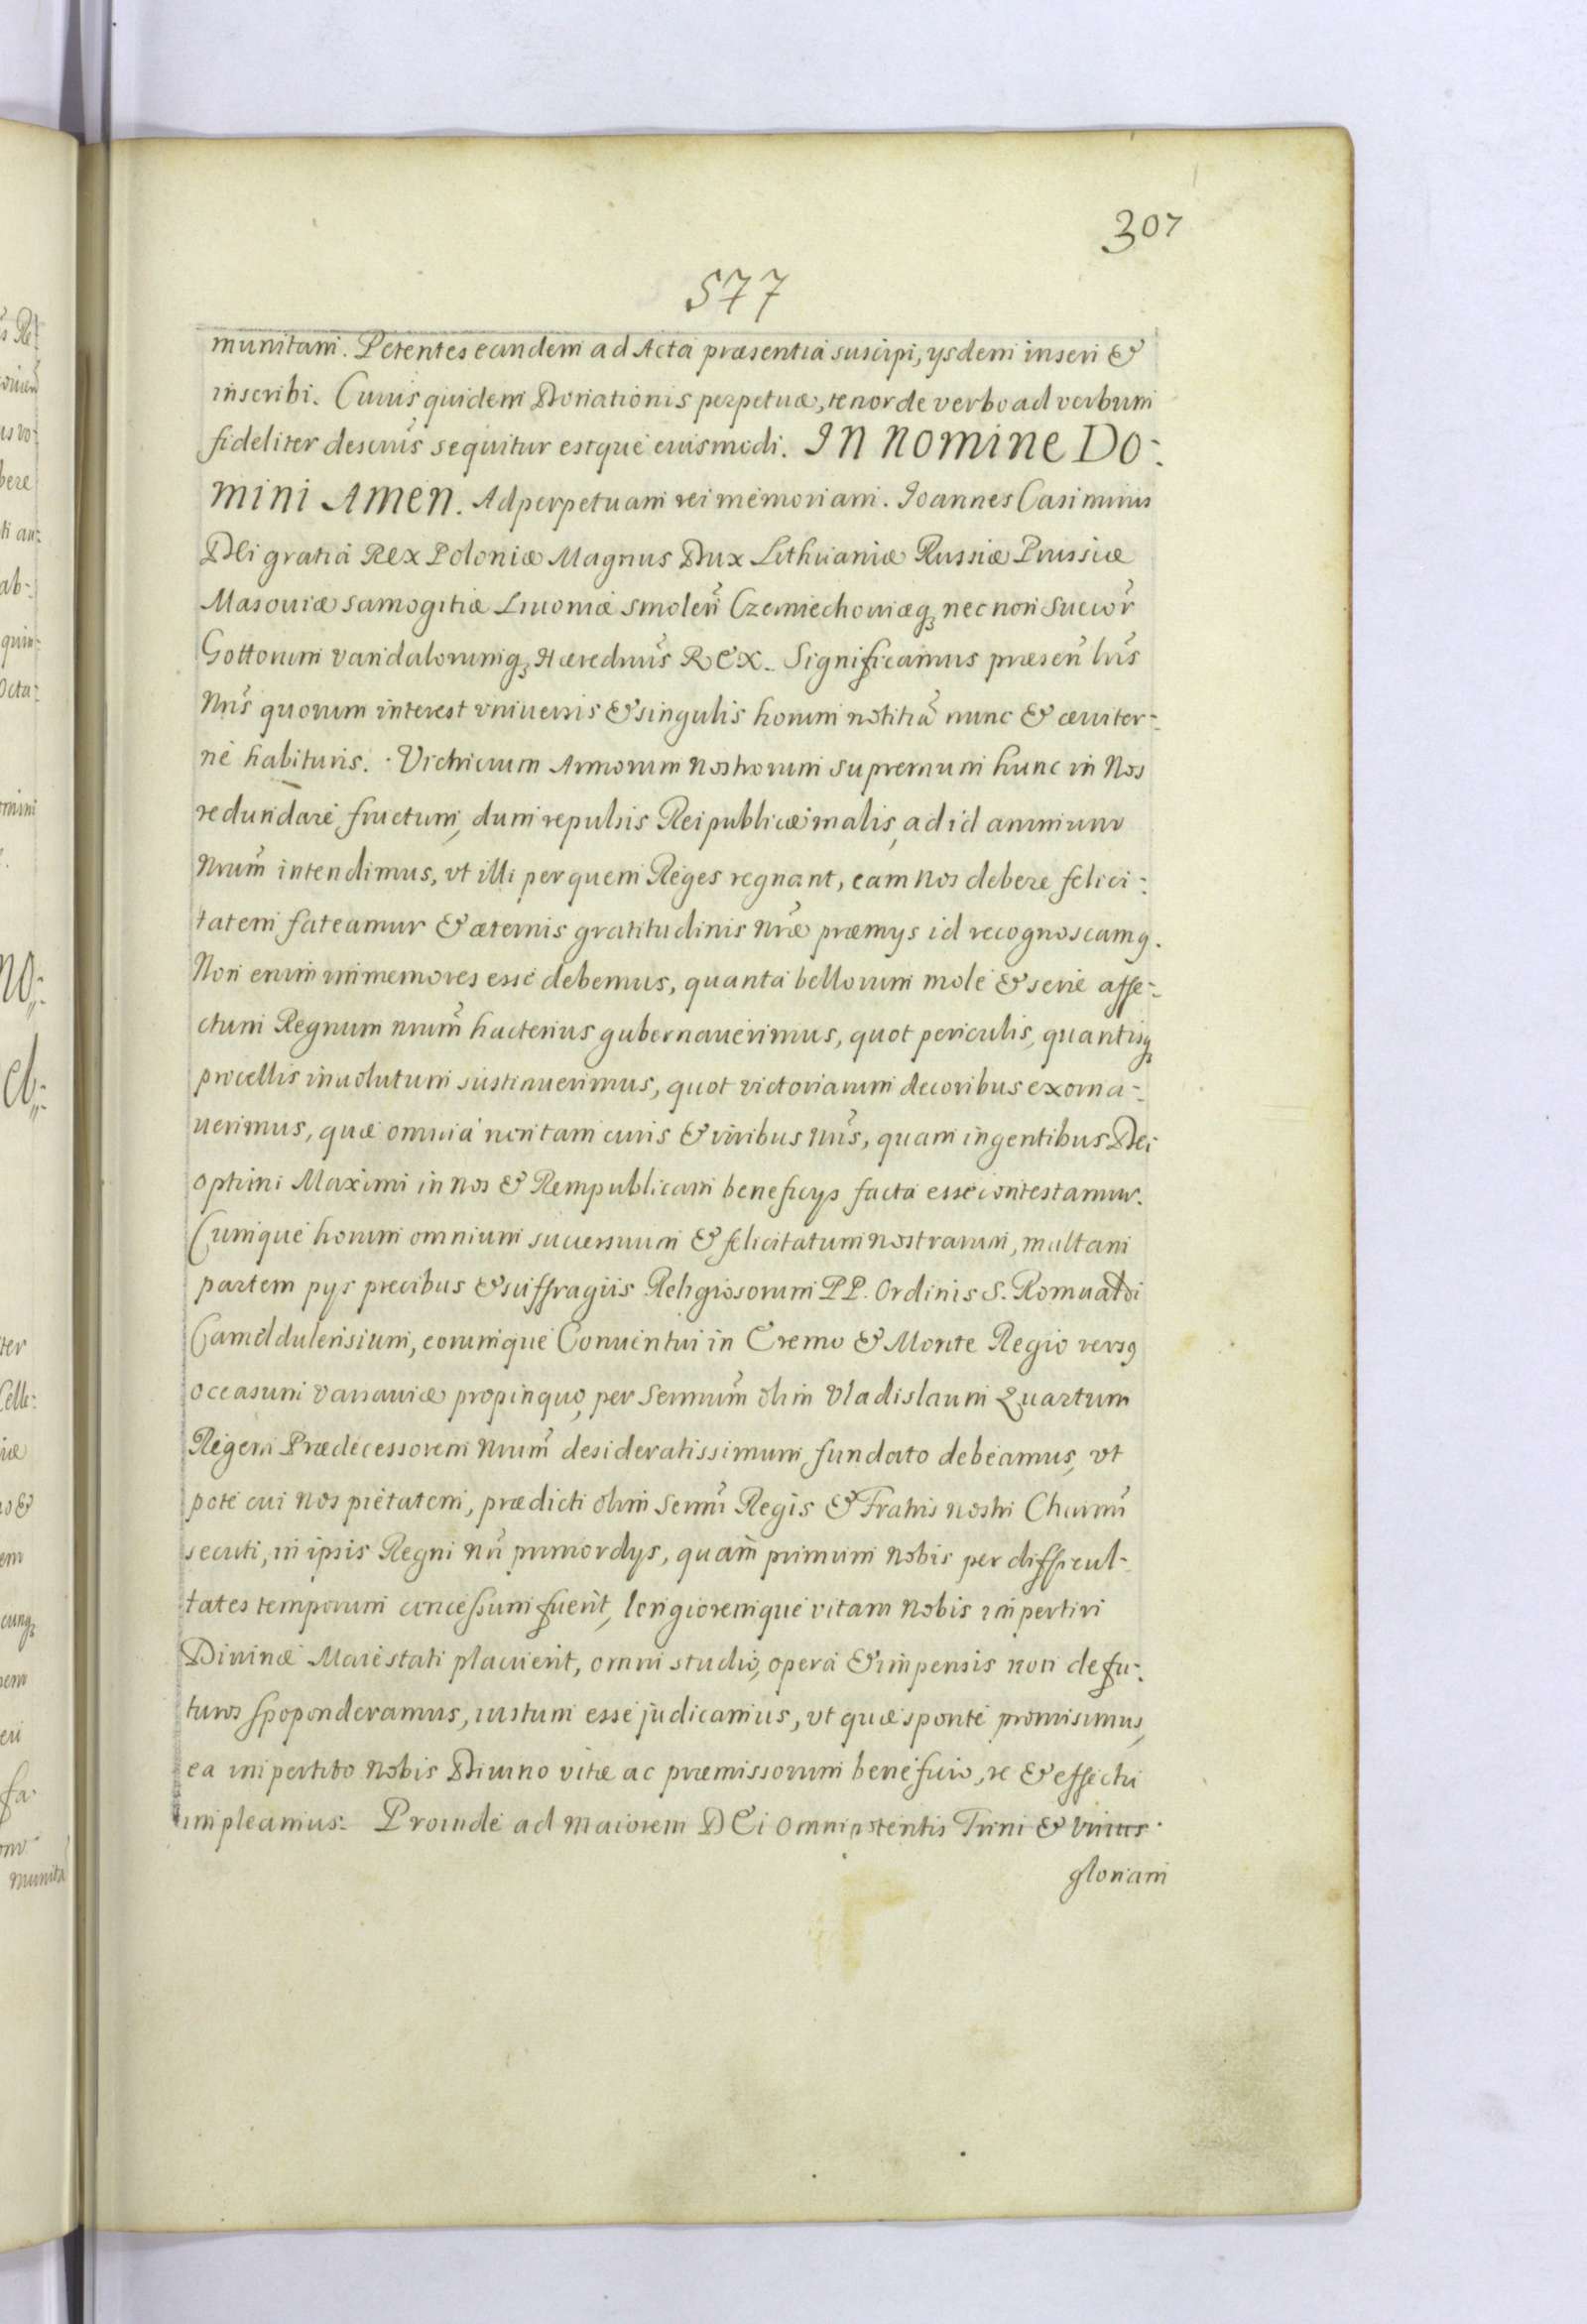 307
577
munitam. Petentes eandem ad Acta præsentia suscipi, ysdem inseri &
inscribi. Cuius quidem Donationis perpetuæ, tenor de verbo ad verbum
fideliter descrip̃s sequitur estque eiusmodi. IN NOMINE DO-
MINI AMEN. Ad perpetuam rei memoriam. Ioannes Casimirus
DEi gratia Rex Poloniæ Magnus Dux Lithuaniæ Russiæ Prussiæ
Masouiæ Samogitiæ Liuoniæ Smoleñ Czerniechouiæq, nec non Suecor̃
Gottorum Vandalorumq, Hæredius̃ REX. Significamus præseñ lr̃is
Nr̃is quorum interest vniuersis & singulis horum notitiã nunc & æuiter-
nè habituris. Victricium Armorum Nostrorum supremum hunc in Nos
redundare fructum, dum repulsis Reipublicæ malis, ad id animum
Nrum̃ intendimus, vt illi per quem Reges regnant, eam Nos debere felici-
tatem fateamur & æternis gratitudinis Nr̃æ præmys id recognoscamq.
Non enim immemores esse debemus, quanta bellorum mole & serie affe-
ctum Regnum nrum̃ hactenus gubernauerimus, quot periculis, quantisq
procellis inuolutum sustinuerimus, quot victoriarum decoribus exorna-
uerimus, quæ omnia non tam curis & viribus nr̃is, quam ingentibus Dei
optimi Maximi in nos & Rempublicam beneficys facta esse contestamur.
Cumque horum omnium successuum & felicitatum nostrarum, multam
partem pys precibus & suffragiis Religiosorum PP. Ordinis S. Romualdi
Cameldulensium, eorumque Conuentui in Eremo & Monte Regio versq
occasum Varsauiæ propinquo, per Sermum̃ olim Vladislaum Quartum
Regem Prædecessorem Nrum̃ desideratissimum, fundato debeamus, vt
pote cui Nos pietatem, prædicti olim Sermi Regis & Fratris nostri Charmĩ
secuti, in ipsis Regni nr̃i primordys, quam primum Nobis per difficul-
tates temporum concessum fuerit, longioremque vitam Nobis impertiri
Diuinæ Maiestati placuerit, omni studio, opera & impensis non defu-
turos spoponderamus, iustum esse judicamus, vt quæ sponte promisimus,
ea impertito Nobis Diuino vitæ ac præmissorum beneficio, re & effectu
impleamus. Proinde ad maiorem DEi omnipotentis Trini & Vnius
gloriam